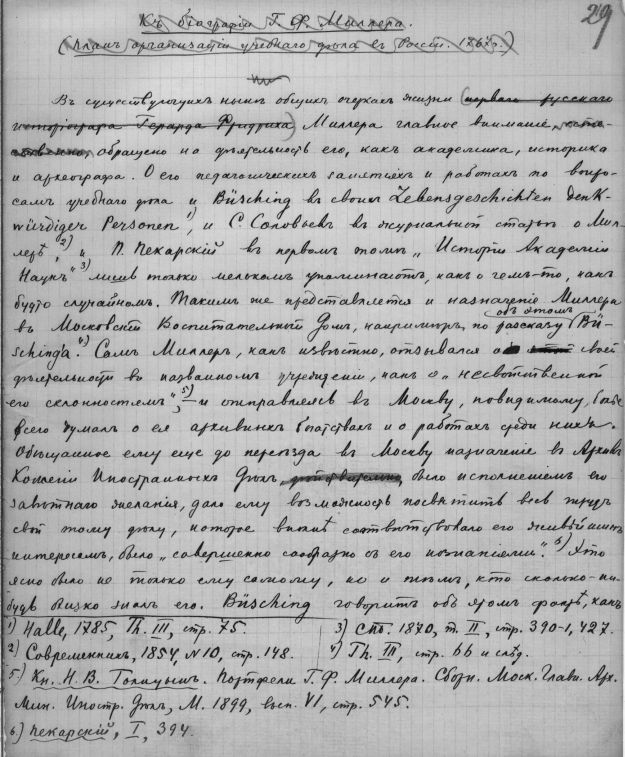 29
Къ біографіи Г. Ф. Миллера.
(Планъ организаціи учебнаго дѣла въ Россіи. 1767 г.)
Въ существующихъ нынѣ общихъ очеркахъ жизни (перваго русскаго
исторіографа Герарда Фридриха) Миллера главное вниманіе,
обращено на дѣятельность его, какъ академика, историка
и археографа. О его педагогическихъ занятіяхъ и работахъ по вопро-
самъ учебнаго дѣла и Büsching въ своихъ Lebensgeschichten denk-
würdiger Personen 1), и С. Соловьевъ въ журнальной статьѣ о Мил-
лерѣ, 2) и П. Пекарскій въ первомъ томѣ „Исторіи Академіи
Наукъ“ 3) лишь только мелькомъ упоминаютъ, какъ о чемъ-то, какъ
будто случайномъ. Такимъ же представляется и назначеніе Миллера
въ Московскій Воспитательный Домъ, напримѣръ, по разсказу объ этомъ (Bü-
sching'a. 4) Самъ Миллеръ, какъ извѣстно, отзывался о своей
дѣятельности въ названномъ учрежденіи, какъ о „несвойственной
его склонностямъ“, 5) и отправляясь въ Москву, повидимому, болѣе
всего думалъ о ея архивныхъ богатствахъ и о работахъ среди нихъ.
Обѣщанное ему еще до переѣзда въ Москву назначеніе въ Архивъ
Коллегіи Иностранныхъ Дѣлъ, дѣйствительно было исполненіемъ его
завѣтнаго желанія, дало ему возможность посвятить весь трудъ
свой тому дѣлу, которое вполнѣ соотвѣтствовало его живѣйшимъ
интересамъ, было „совершенно сообразно съ его познаніями“. 6) Это
ясно было не только ему самому, но и тѣмъ, кто сколько-ни-
будь близко зналъ его. Büsching говоритъ объ этомъ фактѣ, какъ
1) Halle, 1785, Th. III, стр. 75.
2) Современникъ, 1854, N 10, стр. 148.
3) Спб. 1870, т. II, стр. 390-1, 427.
4) Th. III, стр. 66 и слѣд.
5) Кн. Н. В. Голицынъ. Портфели Г. Ф. Миллера. Сборн. Моск. Главн. Арх.
Мин. Иностр. Дѣлъ, М. 1899, вып. VI, стр. 545.
6) Пекарскій, I, 394.